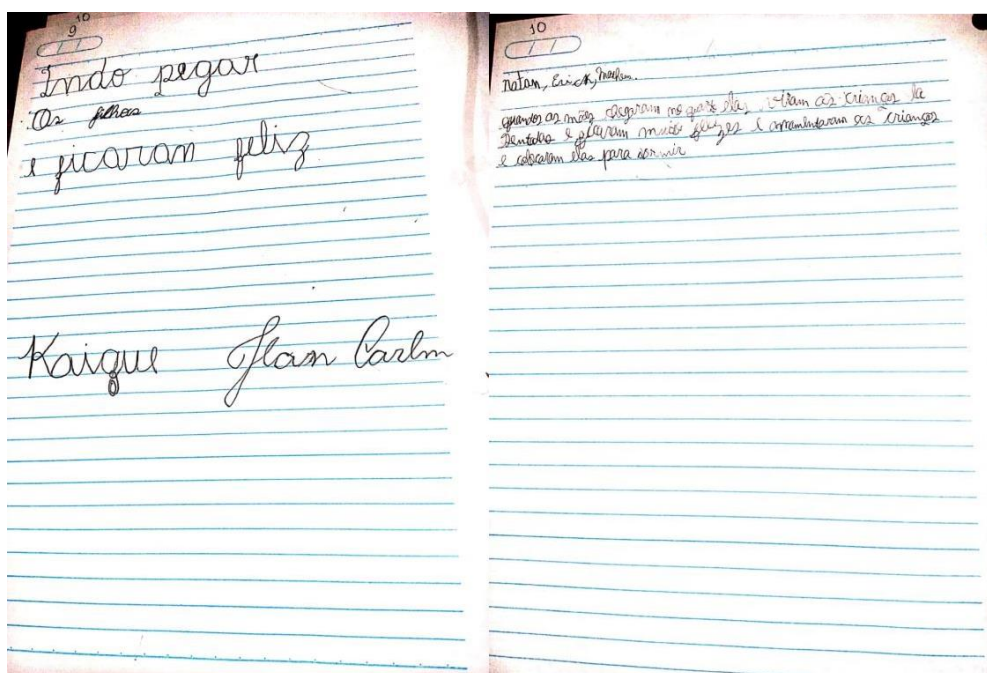 9 10
Indo pegar
Os filhos
e ficaran feliz
Kaique Jean Carlm
10
natan, Erick, Matheus.
quandos as mães chegaram no quarto elas viam as crianças la
Sentadas e ficaram muito felizes e amamentaram as crianças
e colocaram elas para dormir